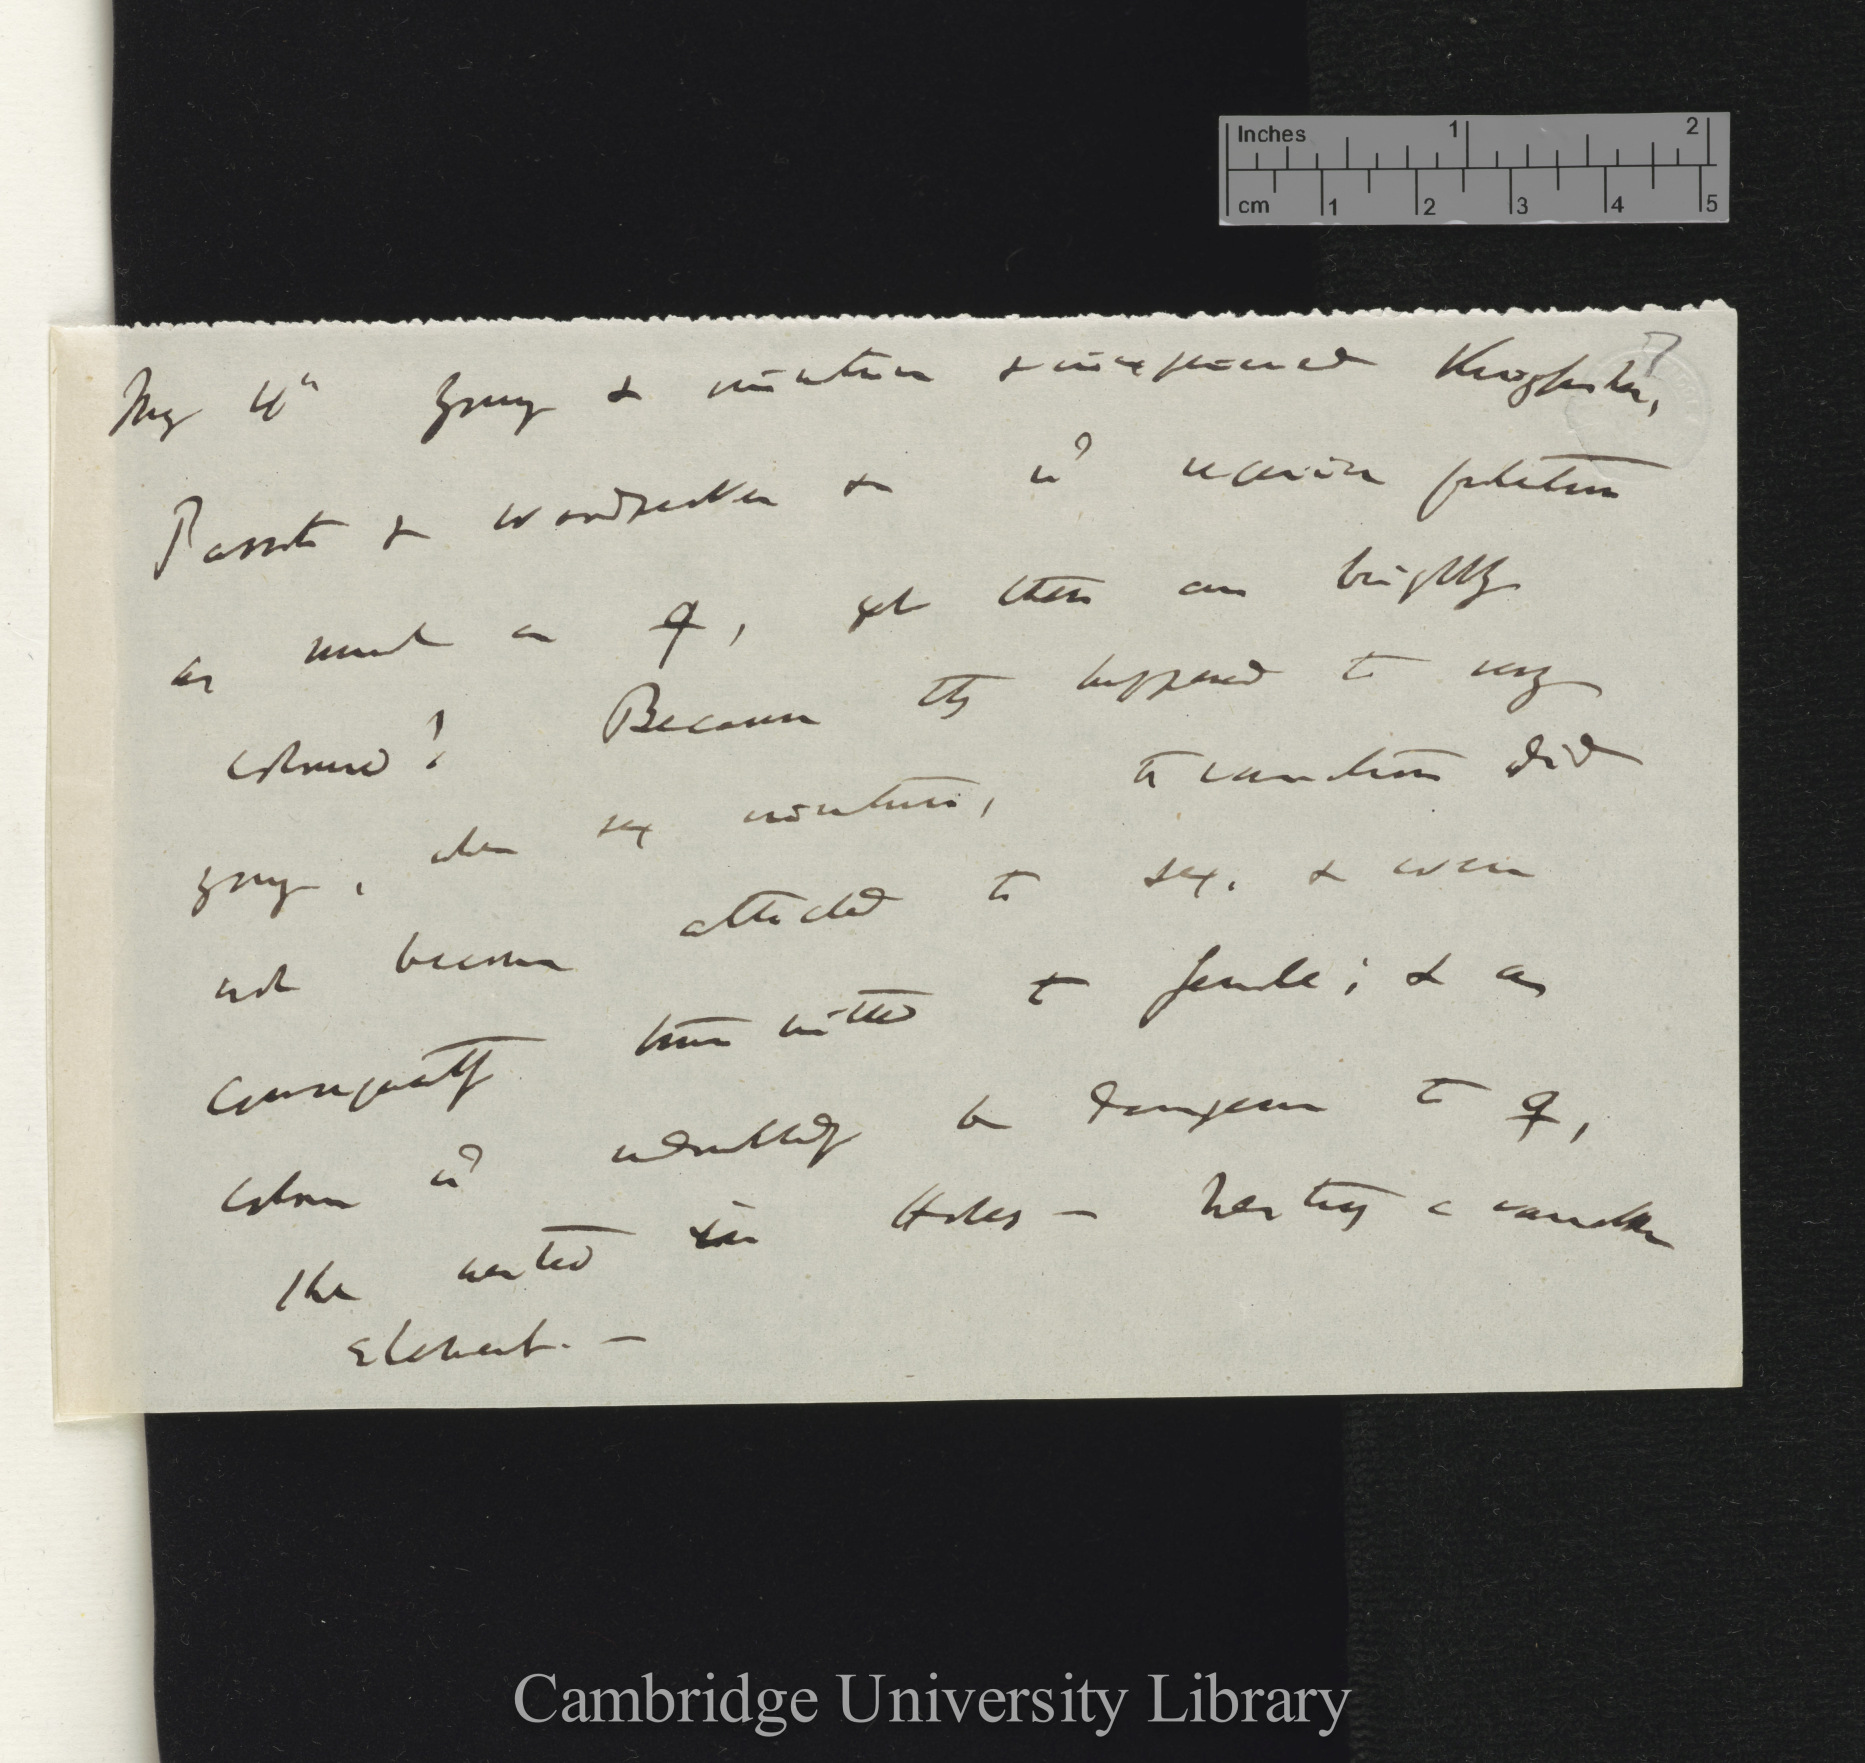 Inches 1 2
cm 1 2 3 4 5
Why sh^d young & & inexperienced Kingfisher,
Parrots & Woodpecker & w^d require protection
as much as ♀, yet these are brightly
coloured? Because they happened to vary
young, when sex, the variations did
not become attached to sex, & were
consequently transmitted to female; & as
colour w^d undoubtedly be dangerous to ♀,
she nested in Holes — nesting a variable
element. —
Cambridge University Library